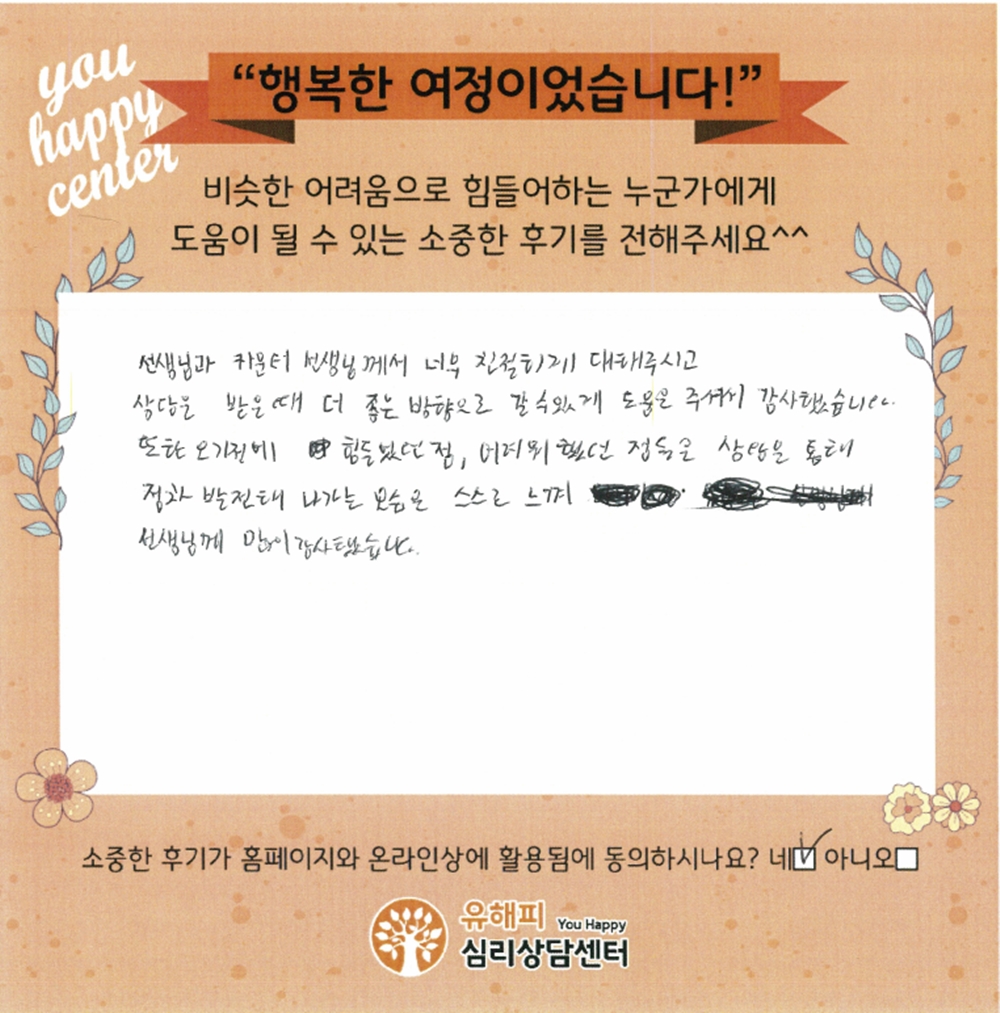 you
happy
center
“행복한 여정이었습니다!”
비슷한 어려움으로 힘들어하는 누군가에게
도움이 될 수 있는 소중한 후기를 전해주세요^^
선생님과 카운터 선생님께서 너무 친절하게 대해주시고
상담을 받을때 더 좋은 방향으로 갈 수 있게 도움을 주셔서 감사했습니다.
또한 오기전에 힘들었던 점, 어려워 했던 점들을 상담을 통해
점차 발전해 나가는 모습을 스스로 느껴
선생님께 많이 감사했습니다.
소중한 후기가 홈페이지와 온라인상에 활용됨에 동의하시나요? 네☑ 아니오☐
유해피 You Happy
심리상담센터